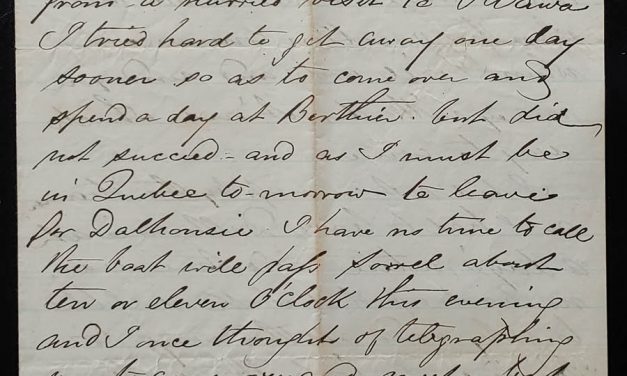 from a hurried visit to Ottawa
I tried hard to get away one day
sooner so as to come over and
spend a day at Berthier. but did
not succeed - and as I must be
in Quebec to-morrow to leave
for Dalhousie I have no time to call
the boat will pass Sorel about
ten or eleven O'Clock this evening
and I once thought of telegraphing